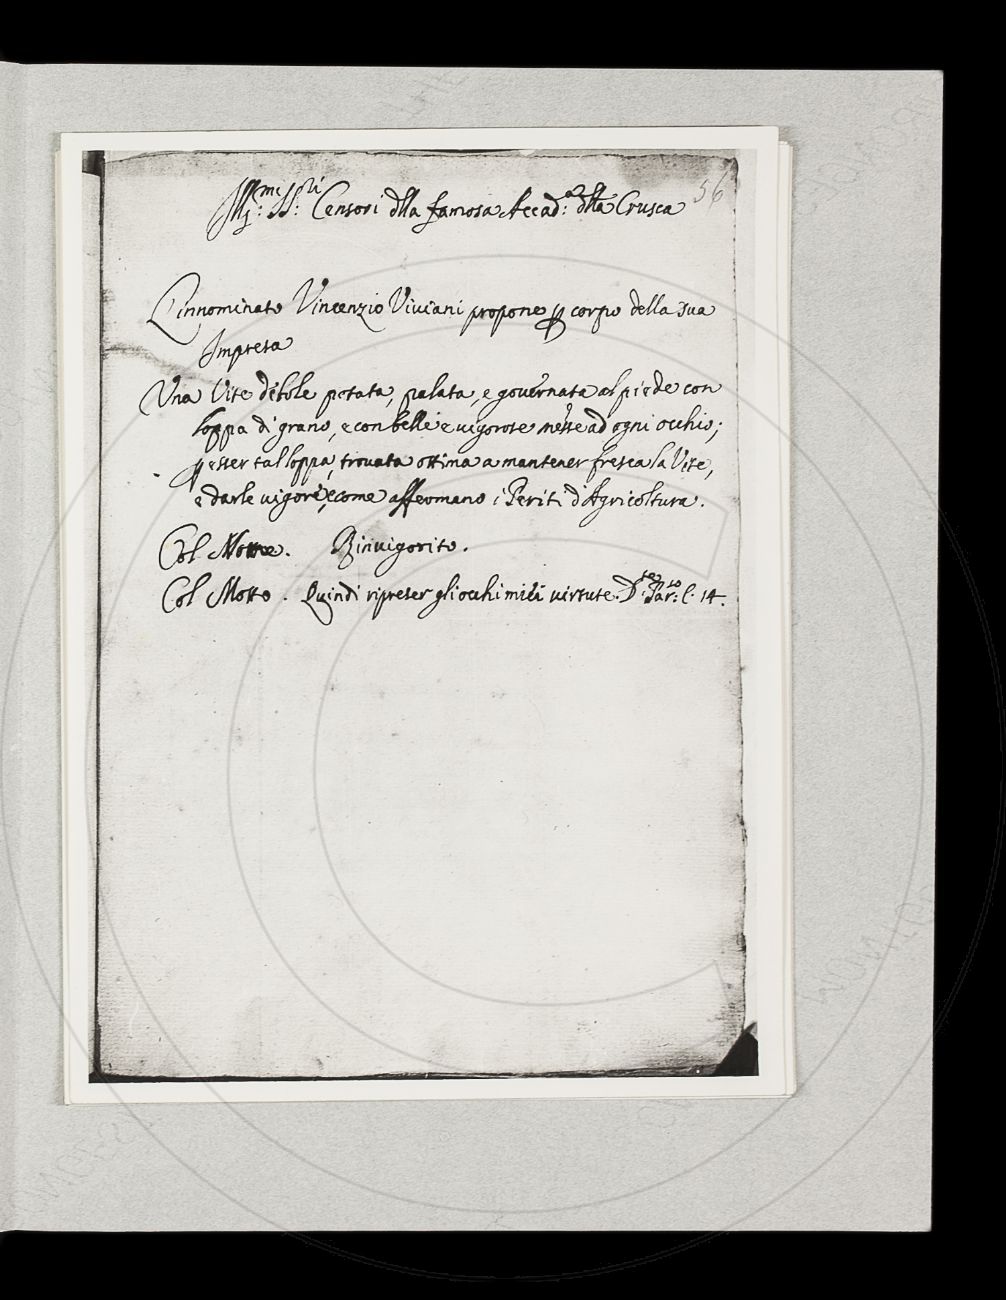 Ill.mi SS.ri Censori dlla famosa Accad.a dlla Crusca
56
L'innominato Vincenzio Viviani propone p corpo della sua
Impresa
Una Vite debole potata, palata, e governata al piede con
loppa di grano, e con belle e vigorose messe ad ogni occhio;
p esser tal loppa, trovata ottima a mantener fresca la Vite,
e darle vigore, come affermano i Periti d'Agricoltura.
Col Nome. Rinvigorito.
Col Motto. Quindi ripreser gli occhi miei virtute. D.te Par.so C. 14.